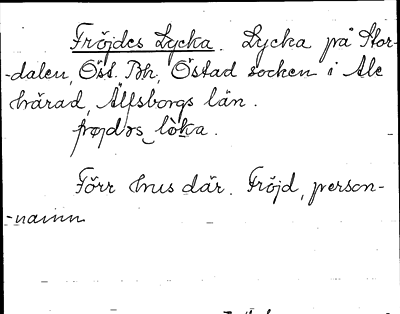 Fröjdes Lycka. Lycka på Stor-
-dalen, Öst. Bh, Östad socken i Ale
härad, Älfsborgs län.
frøjdəs lòka.
Förr hus där. Fröjd, person-
-namn